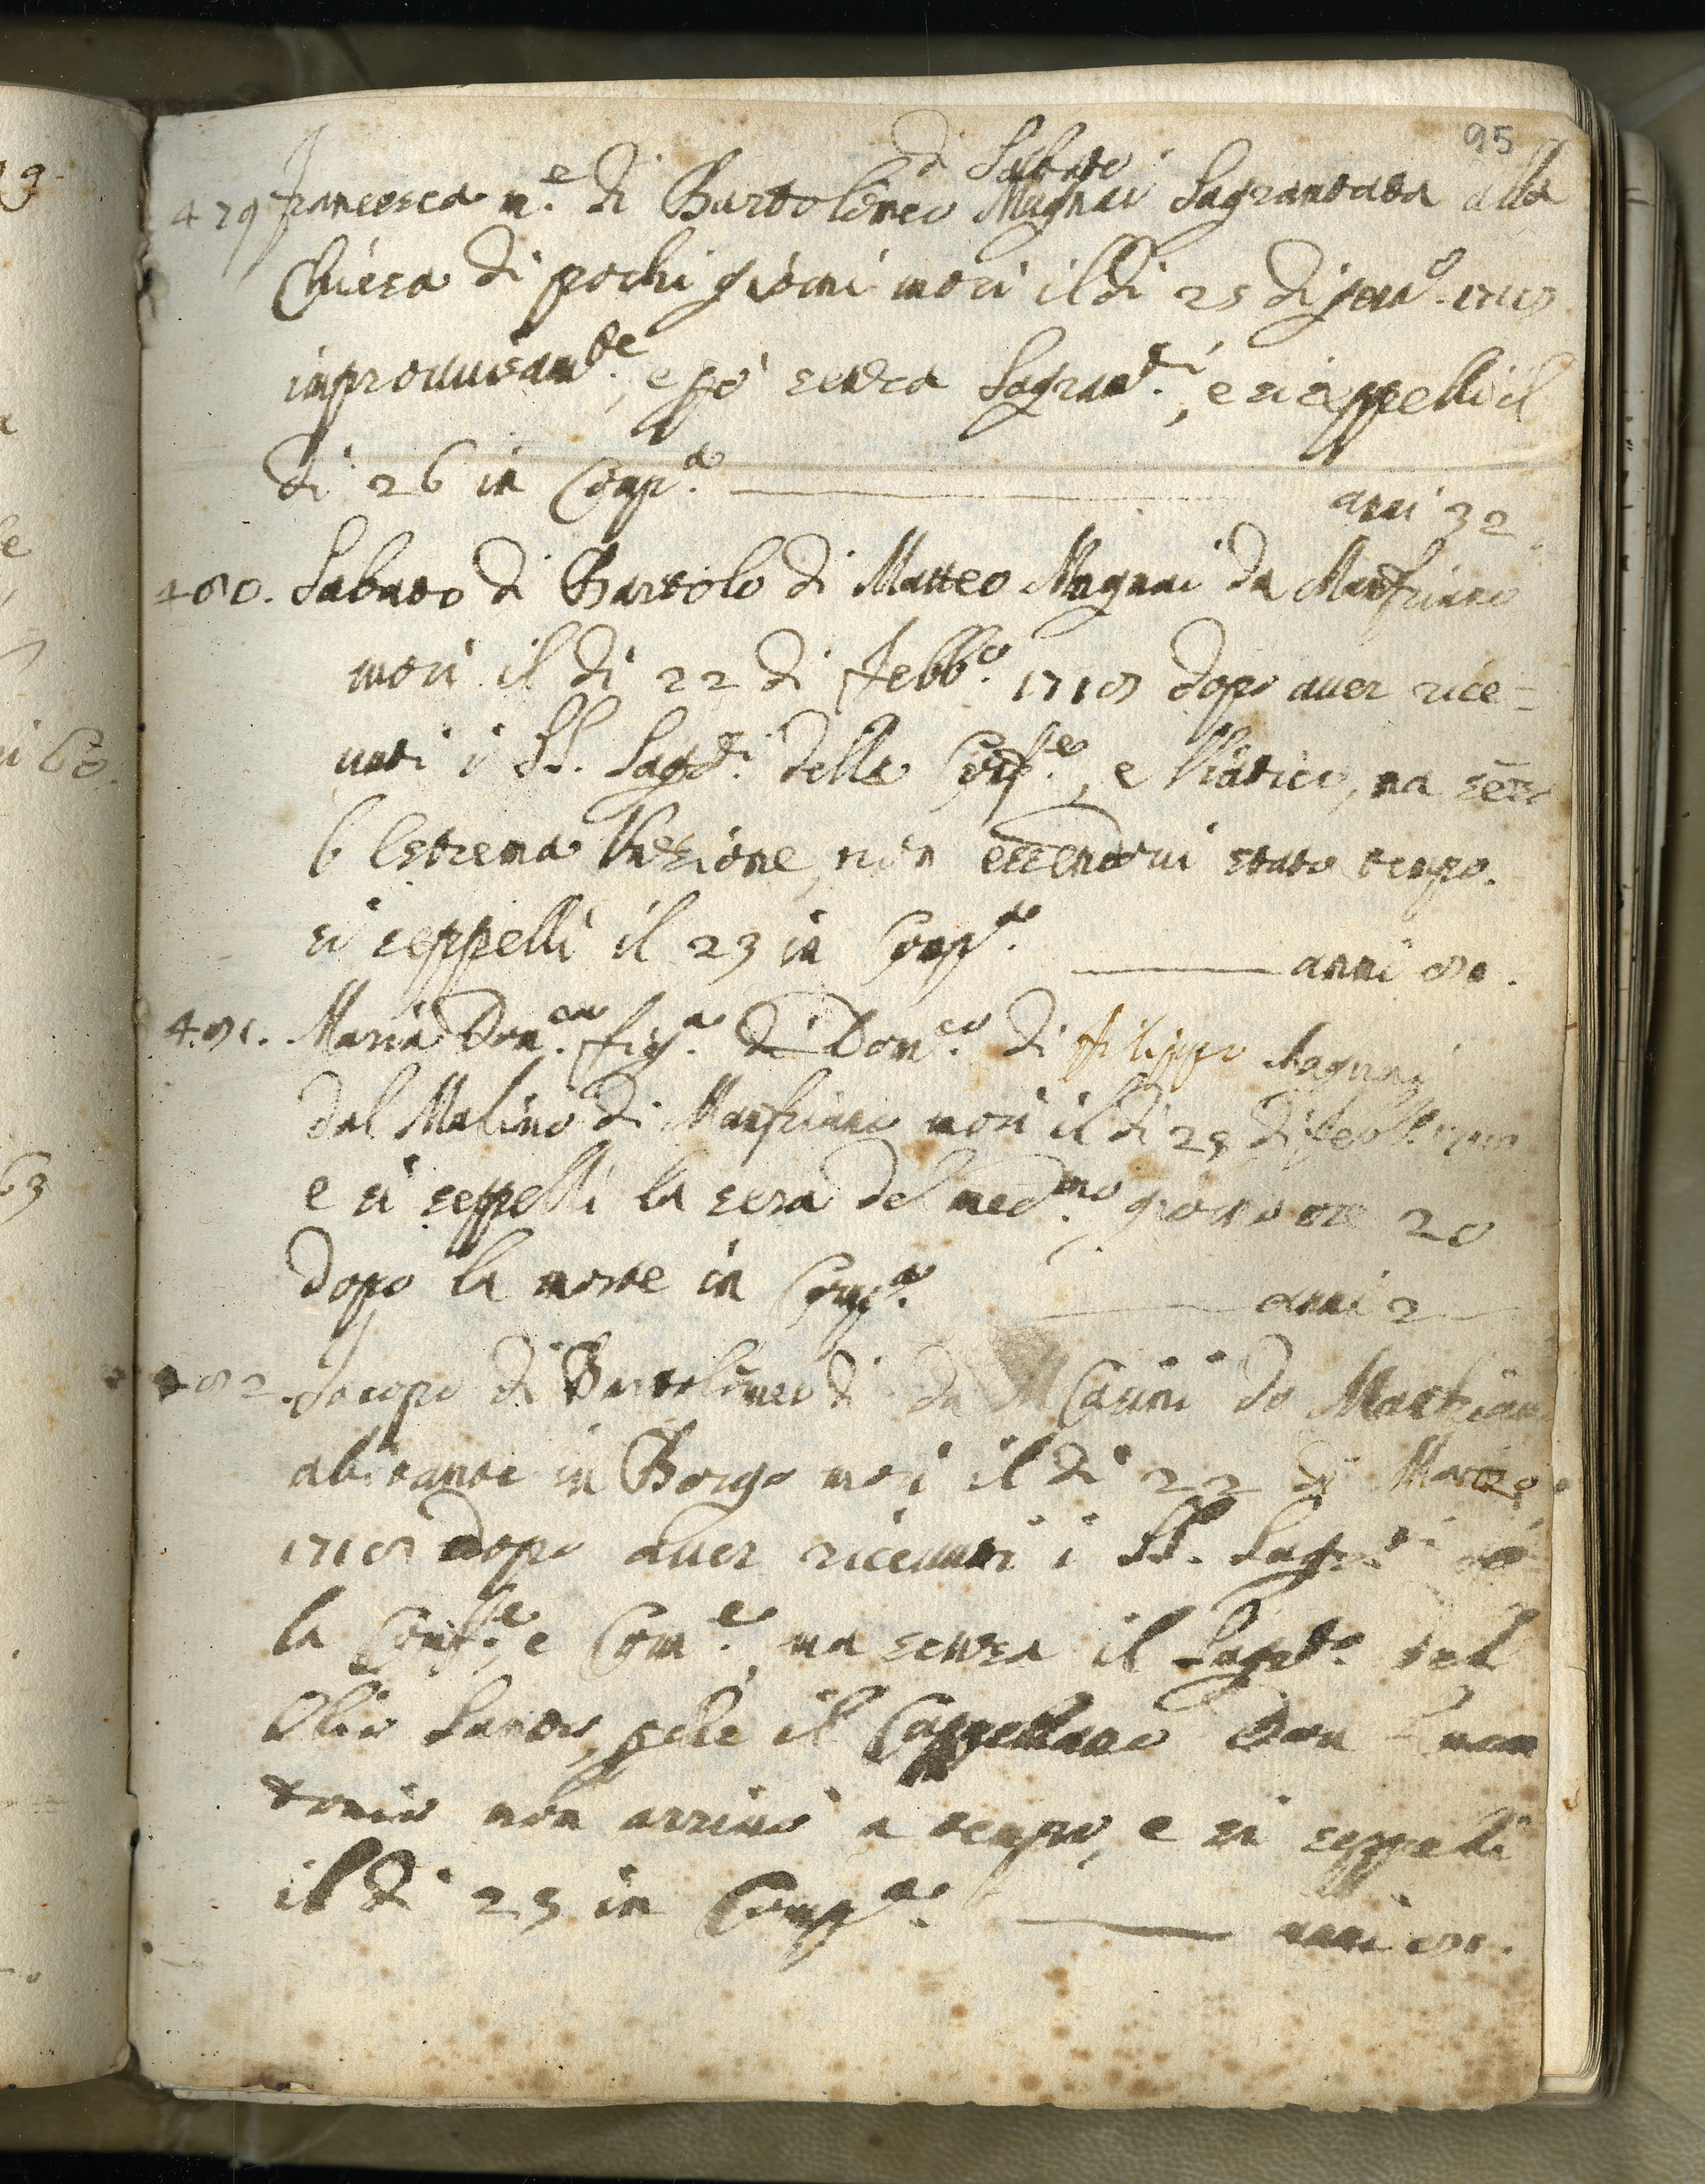 95
di Sabato
479 Francesca m.e di Bartolomeo Magnai Sagramentata alla
Chiesa di pochi giorni morì il dì 25 di Jenn.o 1718
improvvisam.te, e pò senza Sagram.ti, e si seppellì il
dì 26 in Comp.a anni 32
480. Sabato di Bartolo di Matteo Magnai da Manfriano
morì il dì 22 di Febb.o 1718 dopo aver rice=
vuti i SS. Sagr.ti della Conf.ne, e Viatico, ma senza
l'Estrema Unzione, non essendovi stato tempo.
si seppellì il 23 in Comp.a anni 80.
481. Maria Dom.ca fig.a di Dom.co di Filippo Magnai
dal Mulino di Manfriano morì il dì 25 di Febb.o 1718
e si seppellì la sera del med.mo giorno ore 20
dopo la morte in Comp.a anni 2
482. Jacopo di Bartolomeo di da Casini da Manfriano
abitante in Borgo morì il dì 22 di Marzo
1718 dopo aver ricevuti i SS. Sagr.ti del
la Conf.ne, e Com.e, ma senza il Sagr.to del
Olio Santo, pchè il Cappellano Don
tonio non arrivò a tempo, e si seppellì
il dì 23 in Comp.a anni 81.